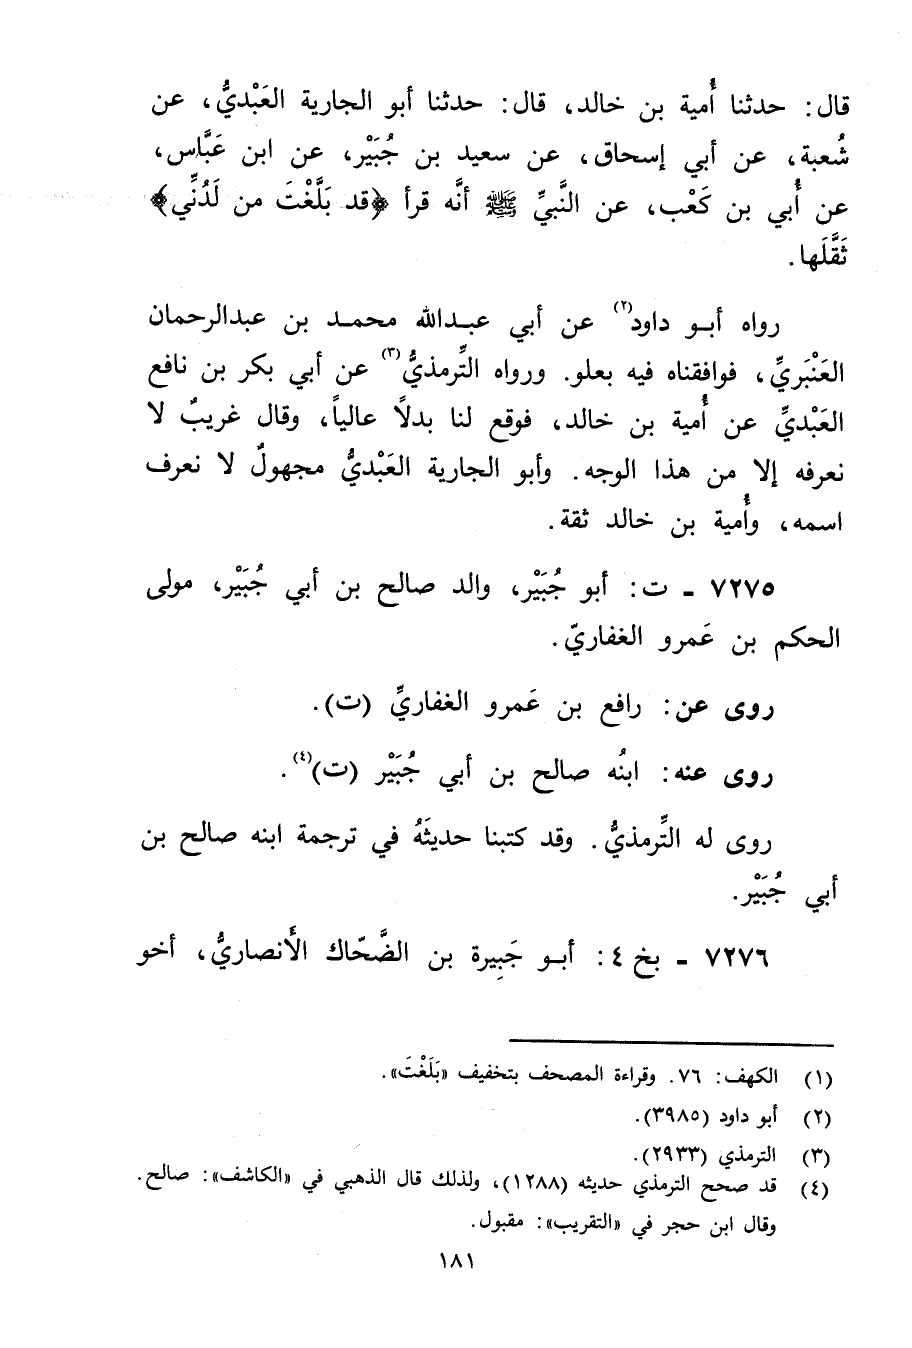 قال: حدثنا أُمية بن خالد، قال: حدثنا أبو الجارية العَبْديُّ، عن
شُعبة، عن أبي إسحاق، عن سعيد بن جُبَيْر، عن ابن عَبَّاس،
عن أُبي بن كَعْب، عن النَّبيِّ ﷺ أنَّه قرأ ﴿قد بَلَّغْتَ من لَدُنِّي﴾
ثَقَّلَها.
رواه أبو داود(٢) عن أبي عبدالله محمد بن عبدالرحمان
العَنْبَريِّ، فوافقناه فيه بعلو. ورواه التِّرمذيُّ(٣) عن أبي بكر بن نافع
العَبْديِّ عن أُمية بن خالد، فوقع لنا بدلاً عالياً، وقال غريبٌ لا
نعرفه إلا من هذا الوجه. وأبو الجارية العَبْديُّ مجهولٌ لا نعرف
اسمه، وأُمية بن خالد ثقة.
٧٢٧٥ - ت: أبو جُبَيْر، والد صالح بن أبي جُبَيْر، مولى
الحكم بن عَمرو الغفاريّ.
روى عن: رافع بن عَمرو الغفاريِّ (ت).
روى عنه: ابنُه صالح بن أبي جُبَيْر (ت)(٤).
روى له التِّرمذيُّ. وقد كتبنا حديثَهُ في ترجمة ابنه صالح بن
أبي جُبَيْر.
٧٢٧٦ - بخ ٤: أبو جَبِيرة بن الضَّحّاك الأَنصاريُّ، أخو
(١) الكهف: ٧٦. وقراءة المصحف بتخفيف «بَلَغْتَ».
(٢) أبو داود (٣٩٨٥).
(٣) الترمذي (٢٩٣٣).
(٤) قد صحح الترمذي حديثه (١٢٨٨)، ولذلك قال الذهبي في «الكاشف»: صالح.
وقال ابن حجر في «التقريب»: مقبول.
١٨١